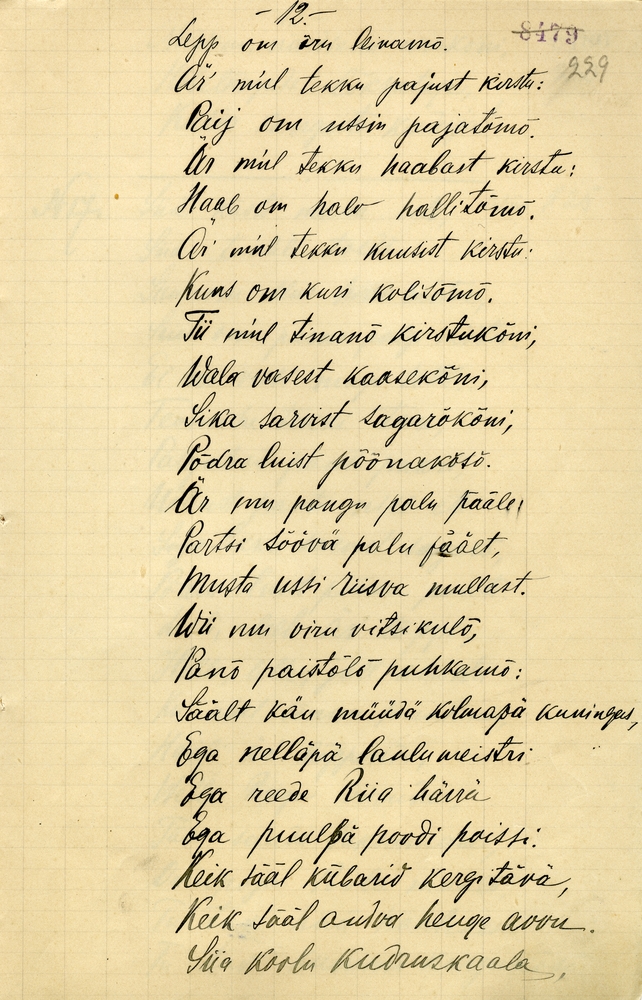 -12.-
8479
229
Lepp om õru leinamõ.
Är' miul tekku pajust kirstu:
Paij om ussin pajatõmõ.
Är miul tekku haabast kirstu:
Haab om halv hallitõmõ.
Är' miul tekku kuusist kirstu:
Kuus om kuri kolisõmõ.
Tii miul tinanõ kirstukõni,
Wala vasest kaasekõni,
Sika sarvist sagarõkõni,
Põdra luist pöönakõsõ.
Är mu pangu palu pääle:
Partsi söövä palu päält,
Musta ussi riisva mullast.
Wii mu viru vitsikulõ,
Panõ paistõlõ puhkamõ:
Säält käu müüdä kolmapä kuningas,
Ega nelläpä laulumeistri
Ega reede Riia härrä
Ega puulpä poodi poissi.
Keik sääl kübarid kergitävä,
Keik sääl andva henge avvu.
Siia koolu kudruskaala,